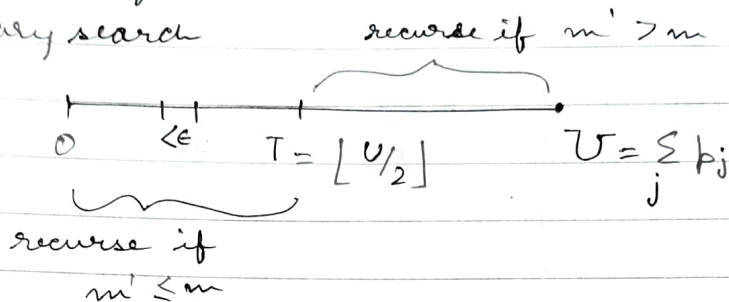 ary search
recurse if m' > m
0
<ϵ
T = ⌊U/2⌋
U = Σ_j p_j
recurse if
m' ≤ m